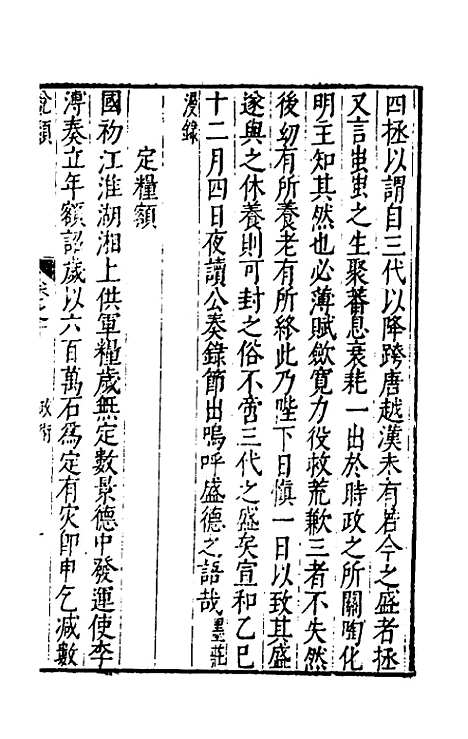 四極以謂自三代以降跨唐越漢未有若今之盛者拯
又言蚩蚩之生聚蕃息衰耗一出於時政之所關陶化
明王知其然也必薄賦斂寛力役救荒歉三者不失然
後幼有所養老有所終此乃陛下日愼一日以致其盛
遂與之休養則可封之俗不啻三代之盛矣宣和乙巳
十二月四日夜讀公奏錄節出嗚呼盛德之語哉墨莊
漫錄
定糧額
國初江淮湖湘上供軍糧歲無定數景德中發運使李
溥奏立年額詔歲以六百萬石爲定有灾卽申乞減數